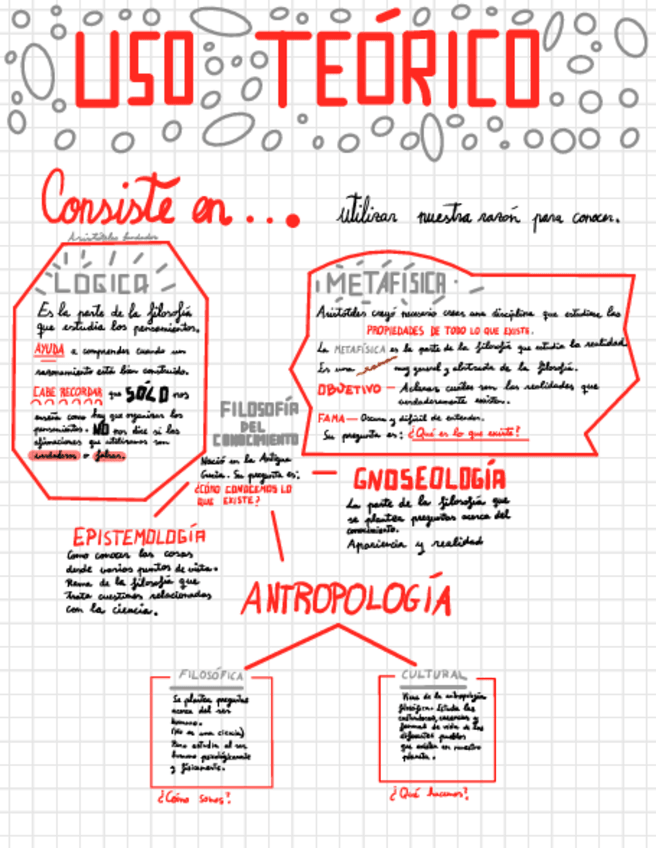 USO TEÓRICO
Consiste en...
utilizar nuestra razón para conocer.
Aristóteles fundador
LÓGICA
Es la parte de la filosofía
que estudia los pensamientos.
AYUDA a comprender cuando un
razonamiento está bien construido.
CABE RECORDAR que SÓLO nos
enseña como hay que organizar los
pensamientos. NO nos dice si las
afirmaciones que utilizamos son
verdaderas o falsas.
METAFÍSICA
Aristóteles creyó necesario crear una disciplina que estudiase las
PROPIEDADES DE TODO LO QUE EXISTE.
La METAFÍSICA es la parte de la filosofía que estudia la realidad.
Es una muy general y abstracta de la filosofía.
OBJETIVO — Aclarar cuáles son las realidades que
verdaderamente existen.
FAMA — Oscura y difícil de entender.
Su pregunta es: ¿Qué es lo que existe?
FILOSOFÍA
DEL
CONOCIMIENTO
Nació en la Antigua
Grecia. Su pregunta es:
¿CÓMO CONOCEMOS LO
QUE EXISTE?
GNOSEOLOGÍA
La parte de la filosofía que
se plantea preguntas acerca del
conocimiento.
Apariencia y realidad
EPISTEMOLOGÍA
Como conocer las cosas
desde varios puntos de vista.
Rama de la filosofía que
trata cuestiones relacionadas
con la ciencia.
ANTROPOLOGÍA
FILOSÓFICA
Se plantea preguntas
acerca del ser
humano.
(No es una ciencia)
Para estudia al ser
humano psicológicamente
y físicamente.
¿Cómo somos?
CULTURAL
Viene de la antropología
filosófica. Estudia las
costumbres, creencias y
formas de vida de los
diferentes pueblos
que existen en nuestro
planeta.
¿Qué hacemos?